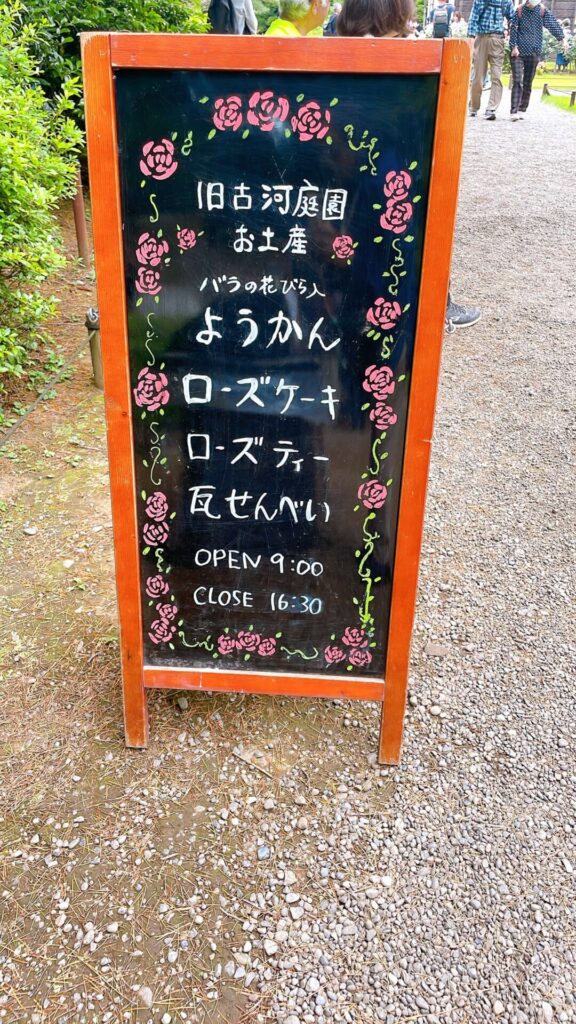 旧古河庭園
お土産
バラの花びら入
ようかん
ローズケーキ
ローズティー
瓦せんべい
OPEN 9:00
CLOSE 16:30